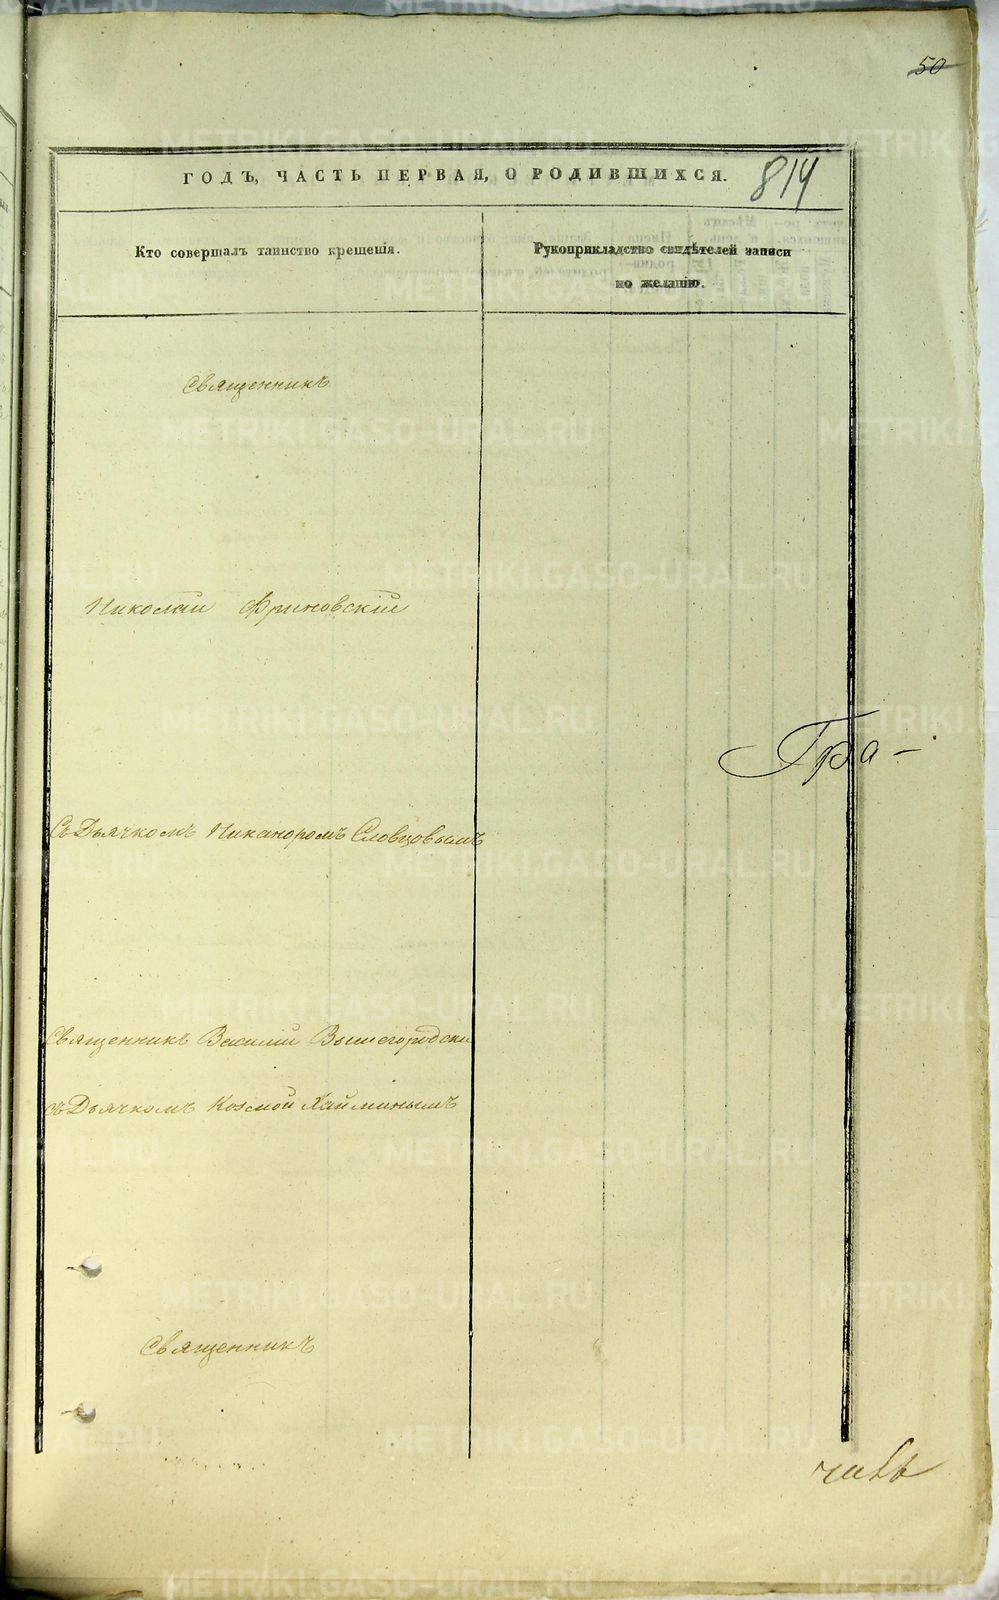 50
ГОДЪ, ЧАСТЬ ПЕРВАЯ, О РОДИВШИХСЯ.
814
Кто совершалъ таинство крещенія.
Рукоприкладство свидѣтелей записи
по желанію.
Священникъ
Николай Фриновскій
Гра-
Съ Дьячкомъ Никаноромъ Словцовымъ
Священникъ Василій Вышегородски
съ Дьячкомъ Козмой Хайминымъ
Священникъ
METRIKI.GASO-URAL.RU